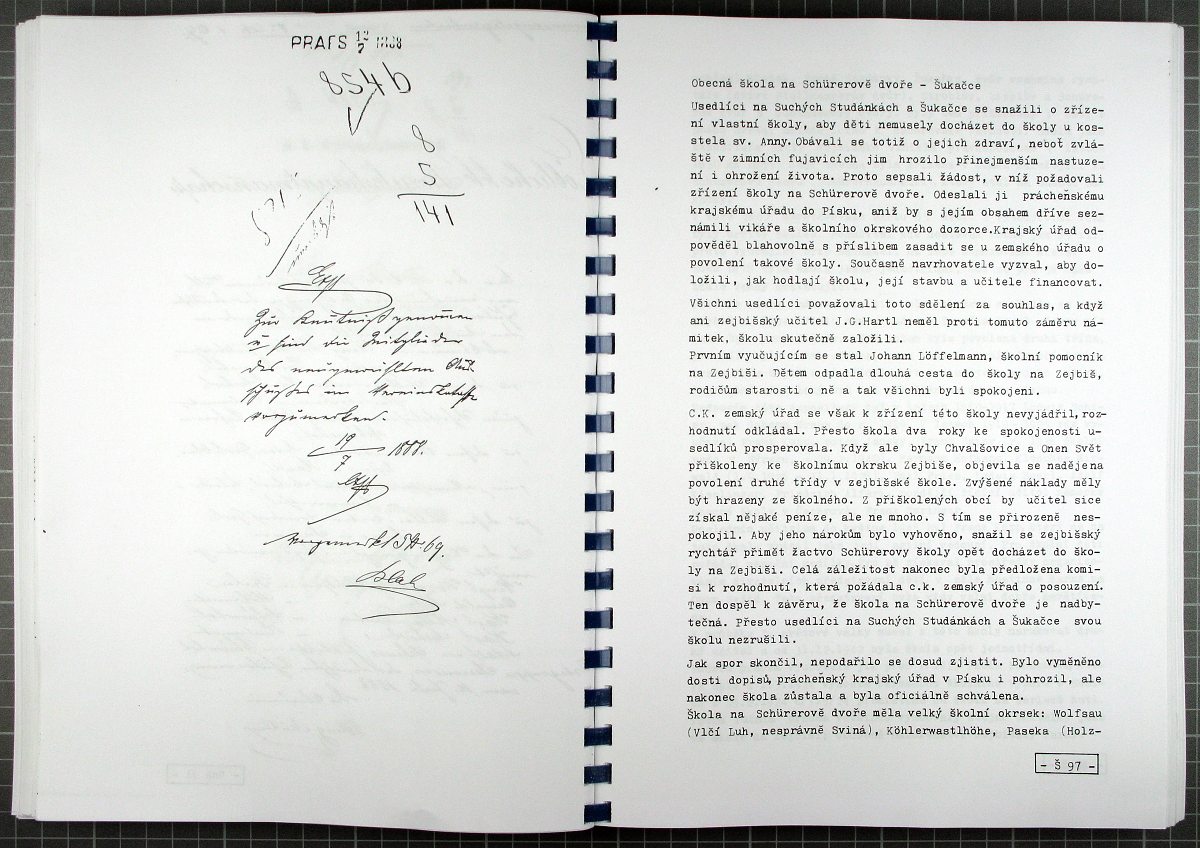 PRAES 12/7 1888
854b
8
5
141
Zur Kenntniß genommen
u. sind die Mitglieder
des neugewählten Aus
schußes im Vereinskataster
vorzumerken.
19/7 1888.
Vorgemerkt 69.
Obecná škola na Schürerově dvoře – Šukačce
Usedlíci na Suchých Studánkách a Šukačce se snažili o zříze-
ní vlastní školy, aby děti nemusely docházet do školy u kos-
stela sv. Anny. Obávali se totiž o jejich zdraví, neboť zvlá-
ště v zimních fujavicích jim hrozilo přinejmenším nastuze-
ní i ohrožení života. Proto sepsali žádost, v níž požadovali
zřízení školy na Schürerově dvoře. Odeslali ji prácheňskému
krajskému úřadu do Písku, aniž by s jejím obsahem dříve sez-
námili vikáře a školního okrskového dozorce.Krajský úřad od-
pověděl blahovolně s příslibem zasadit se u zemského úřadu o
povolení takové školy. Současně navrhovatele vyzval, aby do-
ložili, jak hodlají školu, její stavbu a učitele financovat.
Všichni usedlíci považovali toto sdělení za souhlas, a když
ani zejbišský učitel J.G.Hartl neměl proti tomuto záměru ná-
mitek, školu skutečně založili.
Prvním vyučujícím se stal Johann Löffelmann, školní pomocník
na Zejbiši. Dětem odpadla dlouhá cesta do školy na Zejbiš,
rodičům starosti o ně a tak všichni byli spokojeni.
C.K. zemský úřad se však k zřízení této školy nevyjádřil,roz-
hodnutí odkládal. Přesto škola dva roky ke spokojenosti u-
sedlíků prosperovala. Když ale byly Chvalšovice a Onen Svět
přiškoleny ke školnímu okrsku Zejbiše, objevila se naděje na
povolení druhé třídy v zejbišské škole. Zvýšené náklady měly
být hrazeny ze školného. Z přiškolených obcí by učitel sice
získal nějaké peníze, ale ne mnoho. S tím se přirozeně nes-
pokojil. Aby jeho nárokům bylo vyhověno, snažil se zejbišský
rychtář přimět žactvo Schürerovy školy opět docházet do ško-
ly na Zejbiši. Celá záležitost nakonec byla předložena komi-
si k rozhodnutí, která požádala c.k. zemský úřad o posouzení.
Ten dospěl k závěru, že škola na Schürerově dvoře je nadby-
tečná. Přesto usedlíci na Suchých Studánkách a Šukačce svou
školu nezrušili.
Jak spor skončil, nepodařilo se dosud zjistit. Bylo vyměněno
dosti dopisů, prácheňský krajský úřad v Písku i pohrozil, ale
nakonec škola zůstala a byla oficiálně schválena.
Škola na Schürerově dvoře měla velký školní okrsek: Wolfsau
(Vlčí Luh, nesprávně Sviná), Köhlerwastlhöhe, Paseka (Holz-
- Š 97 -